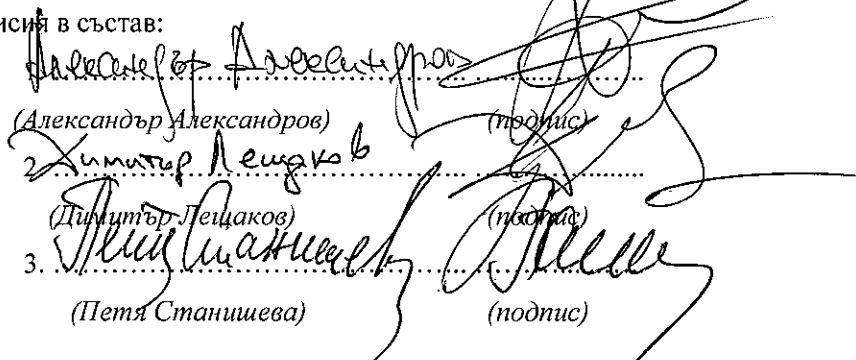 исия в състав:
Александър Александров
(Александър Александров) (подпис)
2. Димитър Лещаков
(Димитър Лещаков) (подпис)
3. Петя Станишева
(Петя Станишева) (подпис)